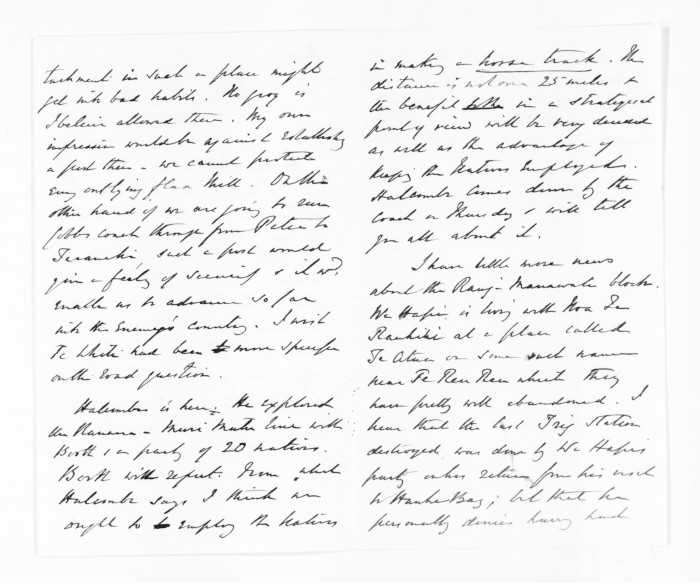 tachment in such a place might
get into bad habits. No grog is
I believe allowed them. My own
impression would be against Establishing
a post then - we cannot protect
every outlying flax Mill. On the
other hand if we are going to run
Cobbs coach through from Patea to
Taranaki, such a post would
give a feelg of security & it wd
enable us to advance so far
into the Enemy's country. I wish
Te Whiti had been more specific
on the road question.
Halcombe is here. He explored
the Manawa - Muri Mutu line with
Booth & a party of 20 natives.
Booth will report. From what
Halcombe says I think we
ought to employ the Natives
in making a horse track. The
distance is not over 25 miles &
the benefit in a strategical
point of view will be very decided
as well as the advantage of
keeping the Natives Employed.
Halcombe comes down by the
coach on Thursday & will tell
you all about it.
I have little more news
about the Rang- Manawatu block.
Wi Hapi is living with Noa Te
Rauhihi at a place called
Te Atua or some such name
near Te Reu Reu which they
have pretty well abandoned. I
hear that the last Trig Station
destroyed, was done by Wi Hapi's
party on his return from his visit
to Hawke Bay; but that he
personally denies having had